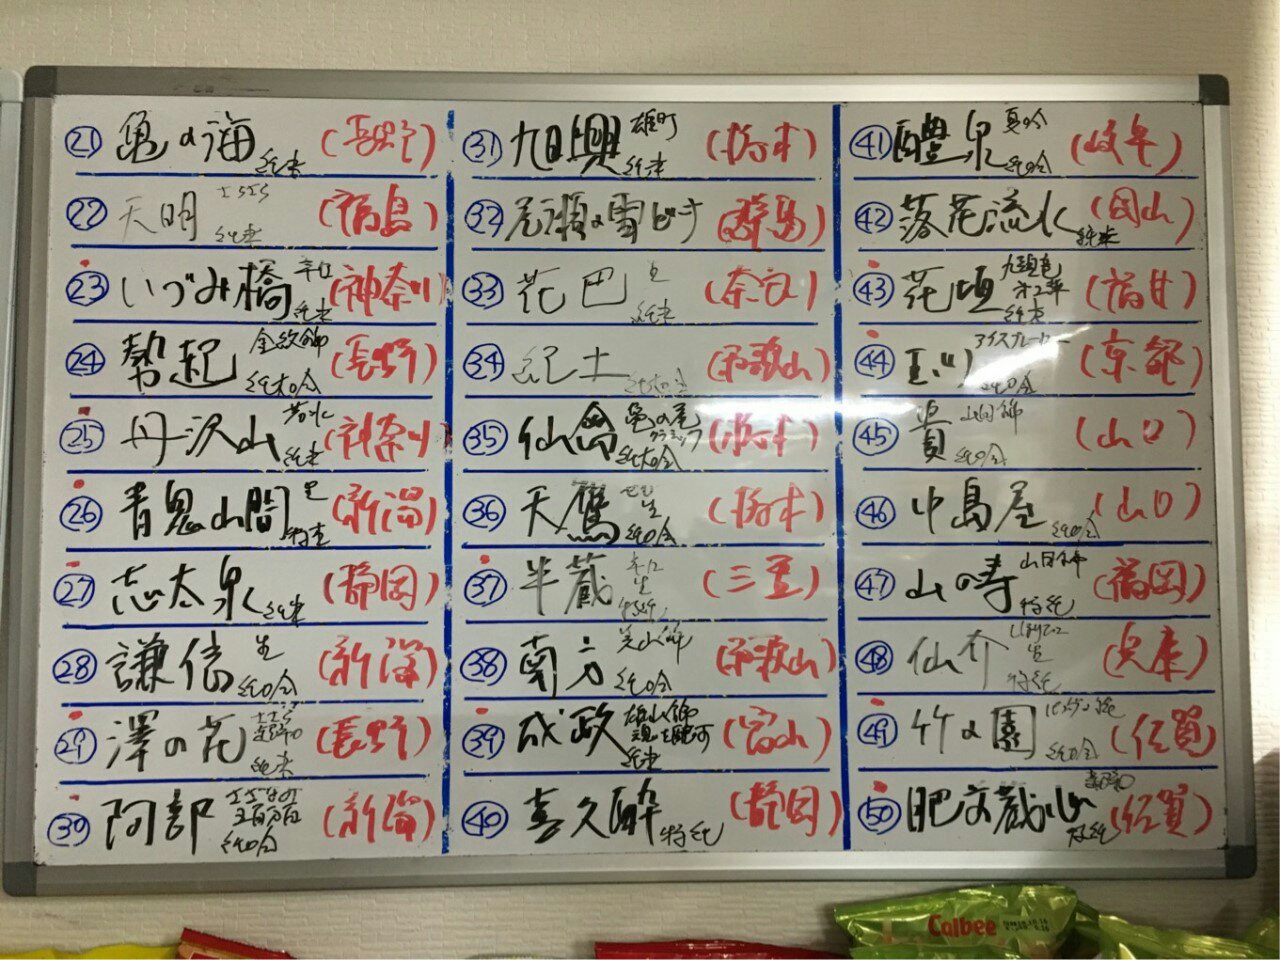 ㉑ 亀の海 純米 (長野)
㉒ 天明 純米 (福島)
㉓ いづみ橋 辛口 純米 (神奈川)
㉔ 勢起 金紋錦 純大吟 (長野)
㉕ 丹沢山 純米 (神奈川)
㉖ 青鬼山間 特 (新潟)
㉗ 志太泉 純米 (静岡)
㉘ 謙信 生 純吟 (新潟)
㉙ 澤の花 純米 (長野)
㉚ 阿部 純吟 (新潟)
㉛ 旭興 雄町 純米 (栃木)
㉜ 尾瀬の雪どけ (群馬)
㉝ 花巴 純米 (奈良)
㉞ 紀土 純大吟 (和歌山)
㉟ 仙禽 亀の尾 純大吟 (栃木)
㊱ 天鷹 生 純吟 (栃木)
㊲ 半蔵 辛口 生 (三重)
㊳ 南方 純吟 (和歌山)
㊴ 成政 雄山錦 純米 (富山)
㊵ 喜久酔 特純 (静岡)
㊶ 醴泉 夏吟 純吟 (岐阜)
㊷ 落花流水 純米 (岡山)
㊸ 花垣 九頭竜 純米 (福井)
㊹ 玉川 アイスブレーカー 純吟 (京都)
㊺ 貴 山田錦 純吟 (山口)
㊻ 中島屋 純吟 (山口)
㊼ 山の壽 山田錦 特純 (福岡)
㊽ 仙介 生 特純 (兵庫)
㊾ 竹の園 純吟 (佐賀)
㊿ 肥前蔵心 特純 (佐賀)
Calbee